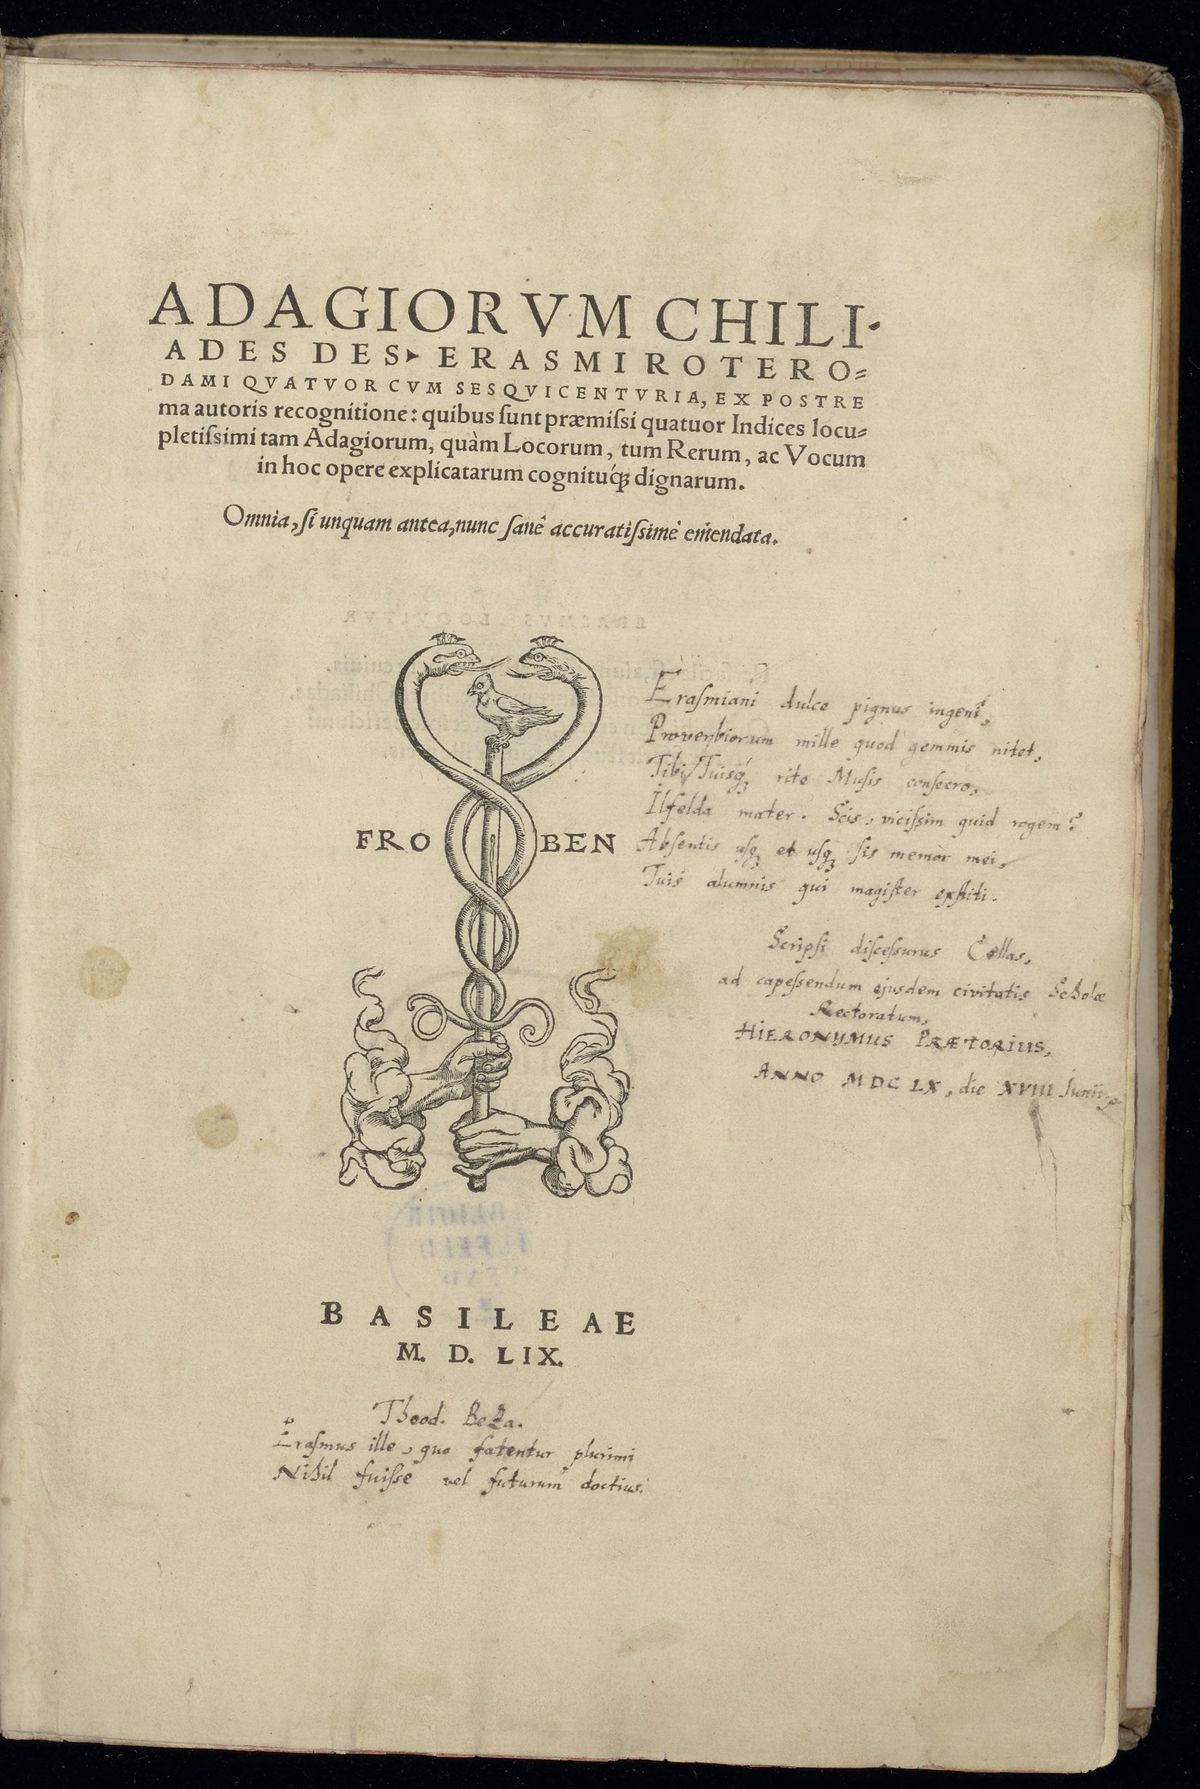 ADAGIORVM CHILI-
ADES DES. ERASMI ROTERO=
DAMI QVATVOR CVM SESQVICENTVRIA, EX POSTRE
ma autoris recognitione: quibus ſunt præmiſsi quatuor Indices locu=
pletiſsimi tam Adagiorum, quàm Locorum, tum Rerum, ac Vocum
in hoc opere explicatarum cognituq́ꝫ dignarum.
Omnia, ſi unquam antea, nunc ſanè accuratiſsimè emendata.
FRO BEN
Eraſmiani dulce pignus ingenî,
Proverbiorum mille quod gemmis nitet,
Tibi, Tuisq́ꝫ rite Muſis conſecro,
Ilfelda mater. Scis, viciſsim quid rogem?
Abſentis uſqꝫ et uſqꝫ ſis memor mei,
Tuis alumnis qui magiſter exſtiti.
Scripſi diſceſſurus Cellas,
ad capeſſendum ejusdem civitatis Scholæ
Rectoratum,
HIERONYMUS PRÆTORIUS,
ANNO MDCLX, die XVIII Junii
BASILEAE
M. D. LIX.
Theod. Beza.
Eraſmus ille, quo fatentur plurimi
Nihil fuiſſe vel futurum doctius.